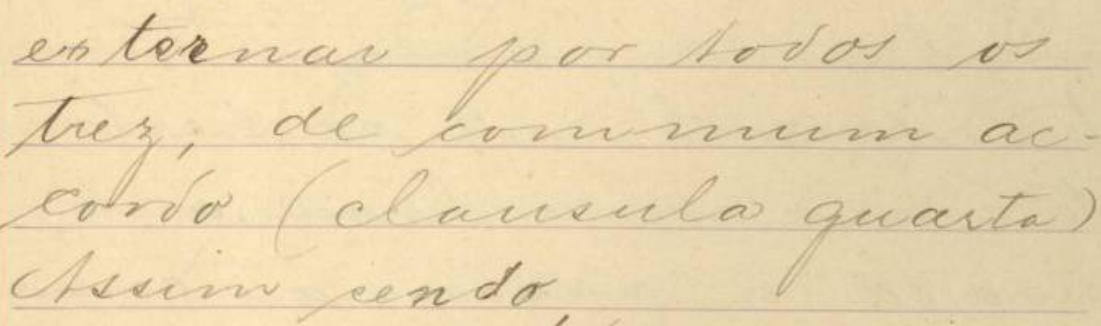 externar por todos os
trez, de commum ac-
cordo (clausula quarta)
Assim sendo,